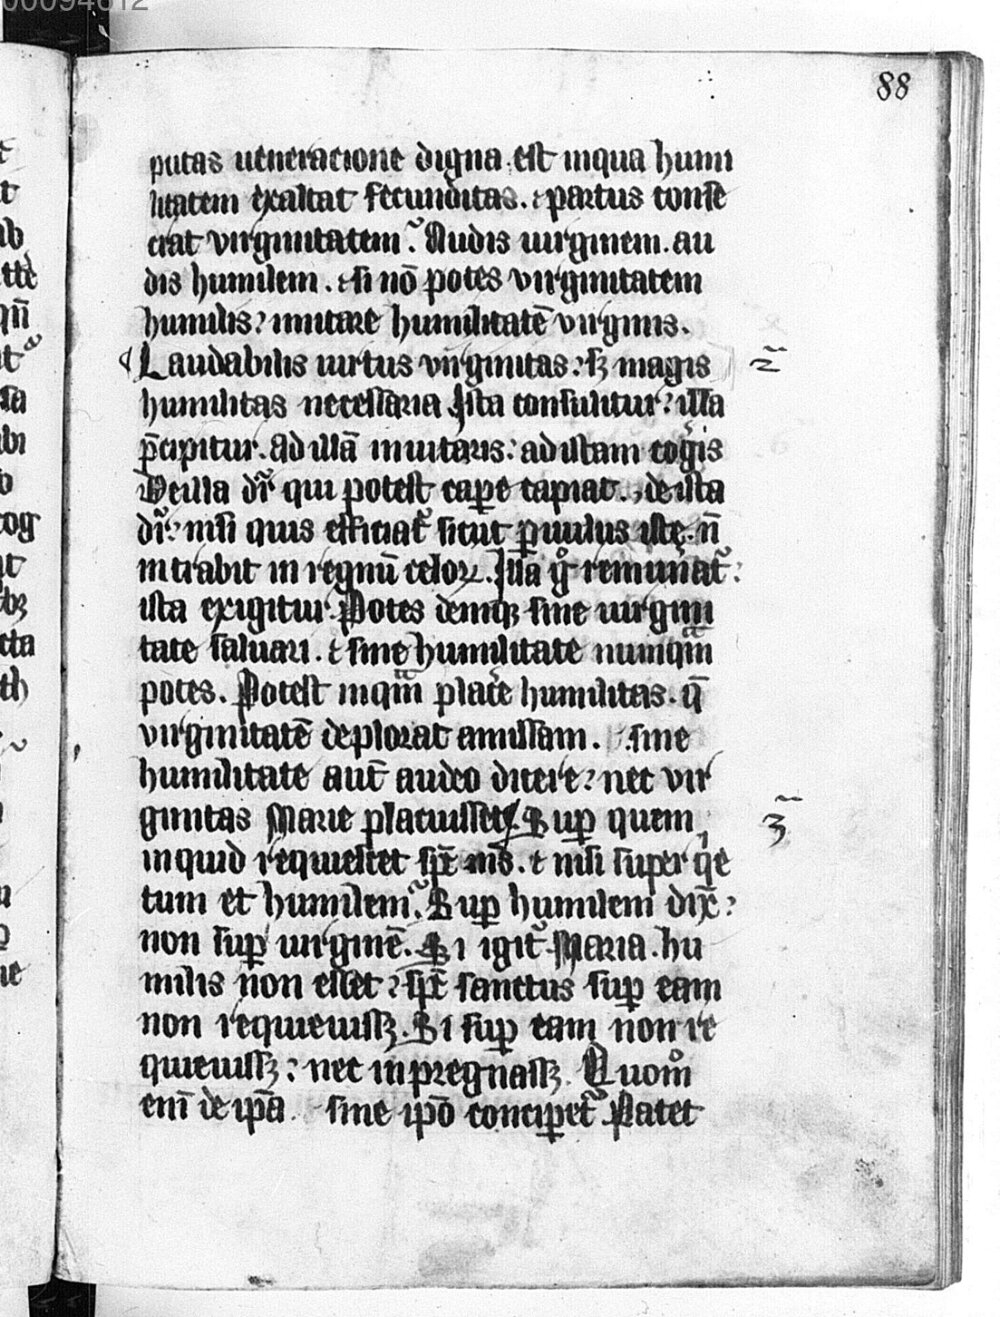 88
putas ueneracione digna est in qua humi
litatem exaltat fecunditas. ⁊ partus conse
crat virginitatem. Audis uirginem. au
dis humilem. ⁊ si nō potes virginitatem
humilis: imitare humilitatē virginis.
Laudabilis uirtus virginitas: sꝫ magis
humilitas necessaria. Ista consulitur: illa
p̄cipitur. Ad illā inuitaris: ad istam cogeris
De illa dr̄ qui potest cap̄e capiat. de ista
dr̄: nisi quis efficiat᷑ sicut puulus iste. n̄
intrabit in regnū celoꝝ. Illa gͦ remunat᷑:
ista exigitur. Potes deniqꝫ sine uirgini
tate saluari. ⁊ sine humilitate numqͣm
potes. Potest inqͣm placere humilitas. q̄
virginitatē deplorat amissam. sine
humilitate aut̄ audeo dicere: nec vir
ginitas Marie placuisset. Suꝑ quem
inquid requiescet sp̄c m̄s. ⁊ nisi super qͥe
tum et humilem. Suꝑ humilem dix̄:
non suꝑ uirginē. Si igit᷑ Maria. hu
milis non esset: sp̄c sanctus suꝑ eam
non requieuissꝫ. Si suꝑ eam non re
quieuissꝫ: nec inpregnassꝫ. Quomͦ
eni᷑ de ip̄a sine ip̄o concipet᷑. Patet